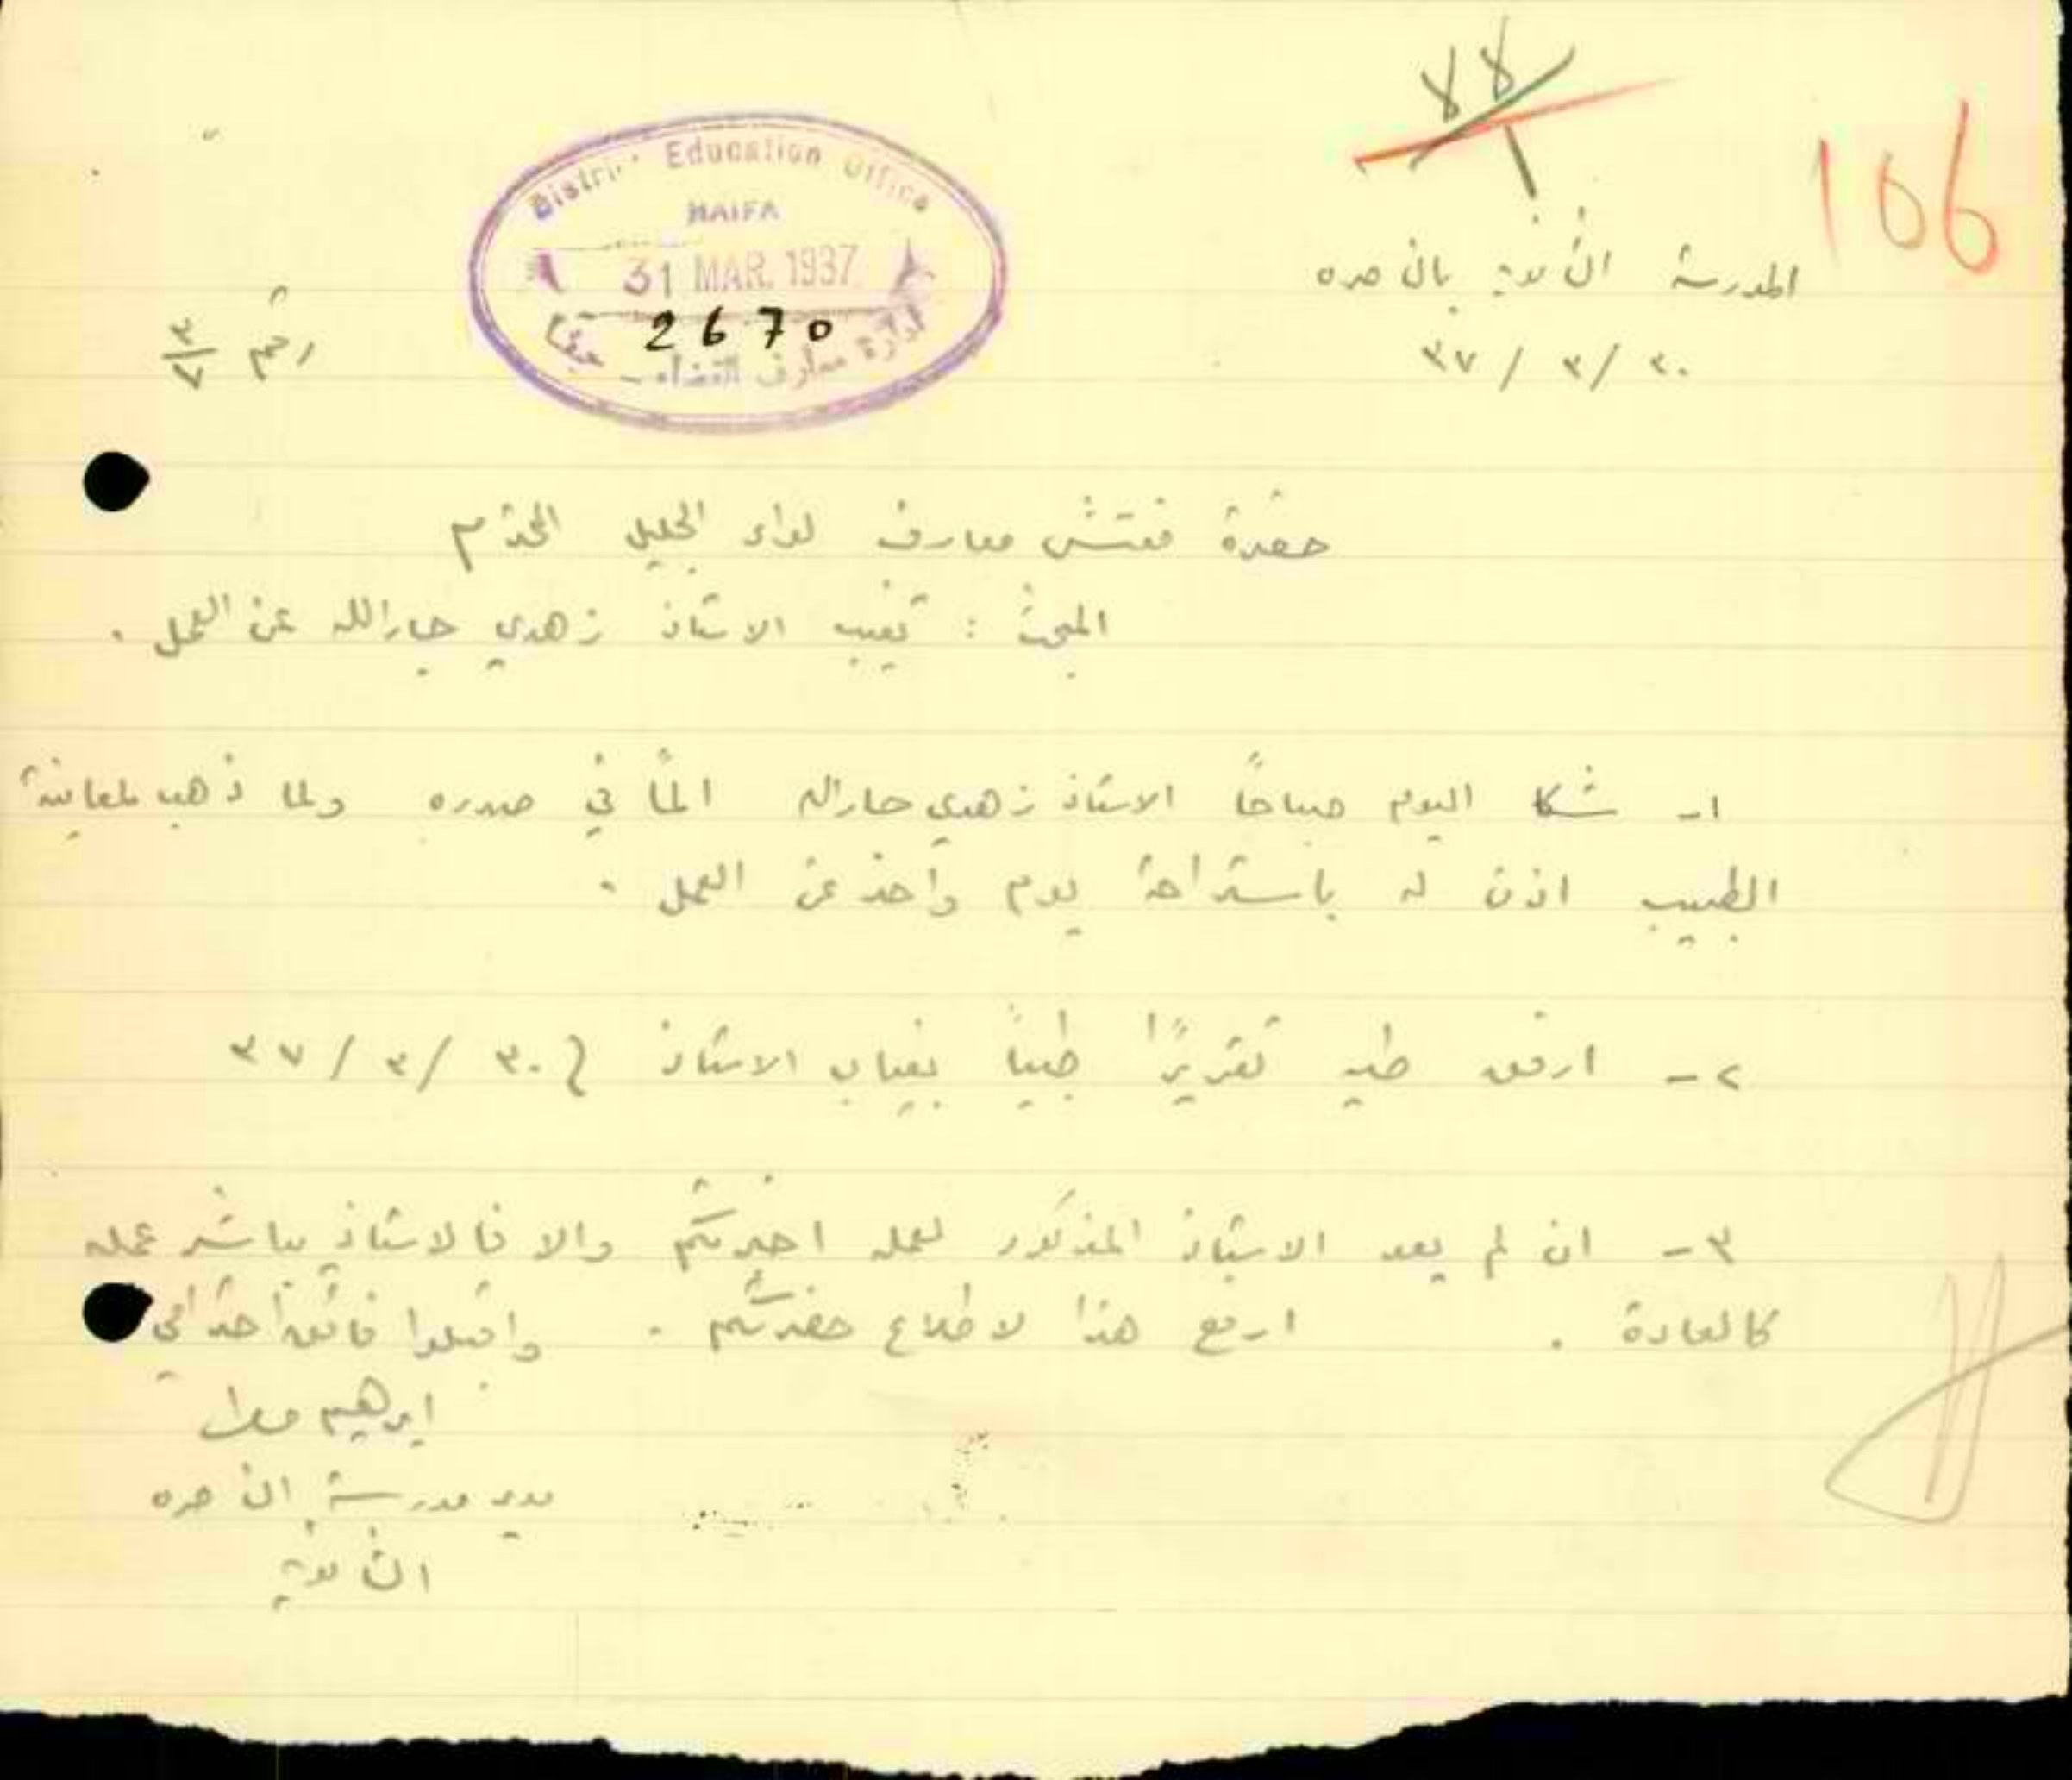 106
District Education Office
HAIFA
31 MAR. 1937
2670
ادارة معارف القضاء - حيفا
المدرسة الثانوية بالناصره
٣٠ / ٣ / ٣٧
رقم ٣/٧
حضرة مفتش معارف لواء الجليل المحترم
المبحث : تغيب الاستاذ زهدي جارالله عن العمل .
١- شكا اليوم صباحاً الاستاذ زهدي جارالله الماً في صدره ولما ذهب لمعاينة
الطبيب اذن له باستراحة يوم واحد عن العمل .
٢- ارفق طيه تقريرًا طبياً بغياب الاستاذ ٣٠ / ٣ / ٣٧
٣- ان لم يعد الاستاذ المذكور لعمله اخبرتكم والا فالاستاذ يباشر عمله
كالعادة . ارفع هذا لاطلاع حضرتكم . واقبلوا فائق احترامي
ابرهيم
مدير مدرسة الناصره
الثانوية